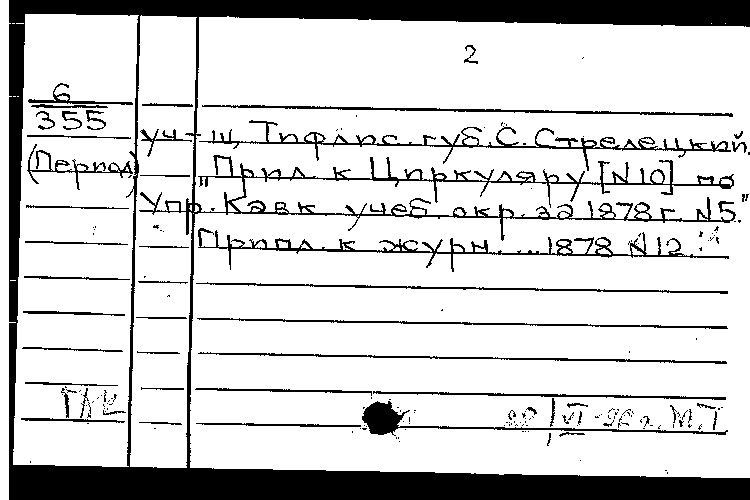 2
6
355
(Период)
уч-щ, Тифлис. губ. С. Стрелецкий.
"Прил к Циркуляру [N10] по
Упр. Кавк учеб. окр. за 1878 г. N5."
Прил. к журн. ... 1878 N12.
VI